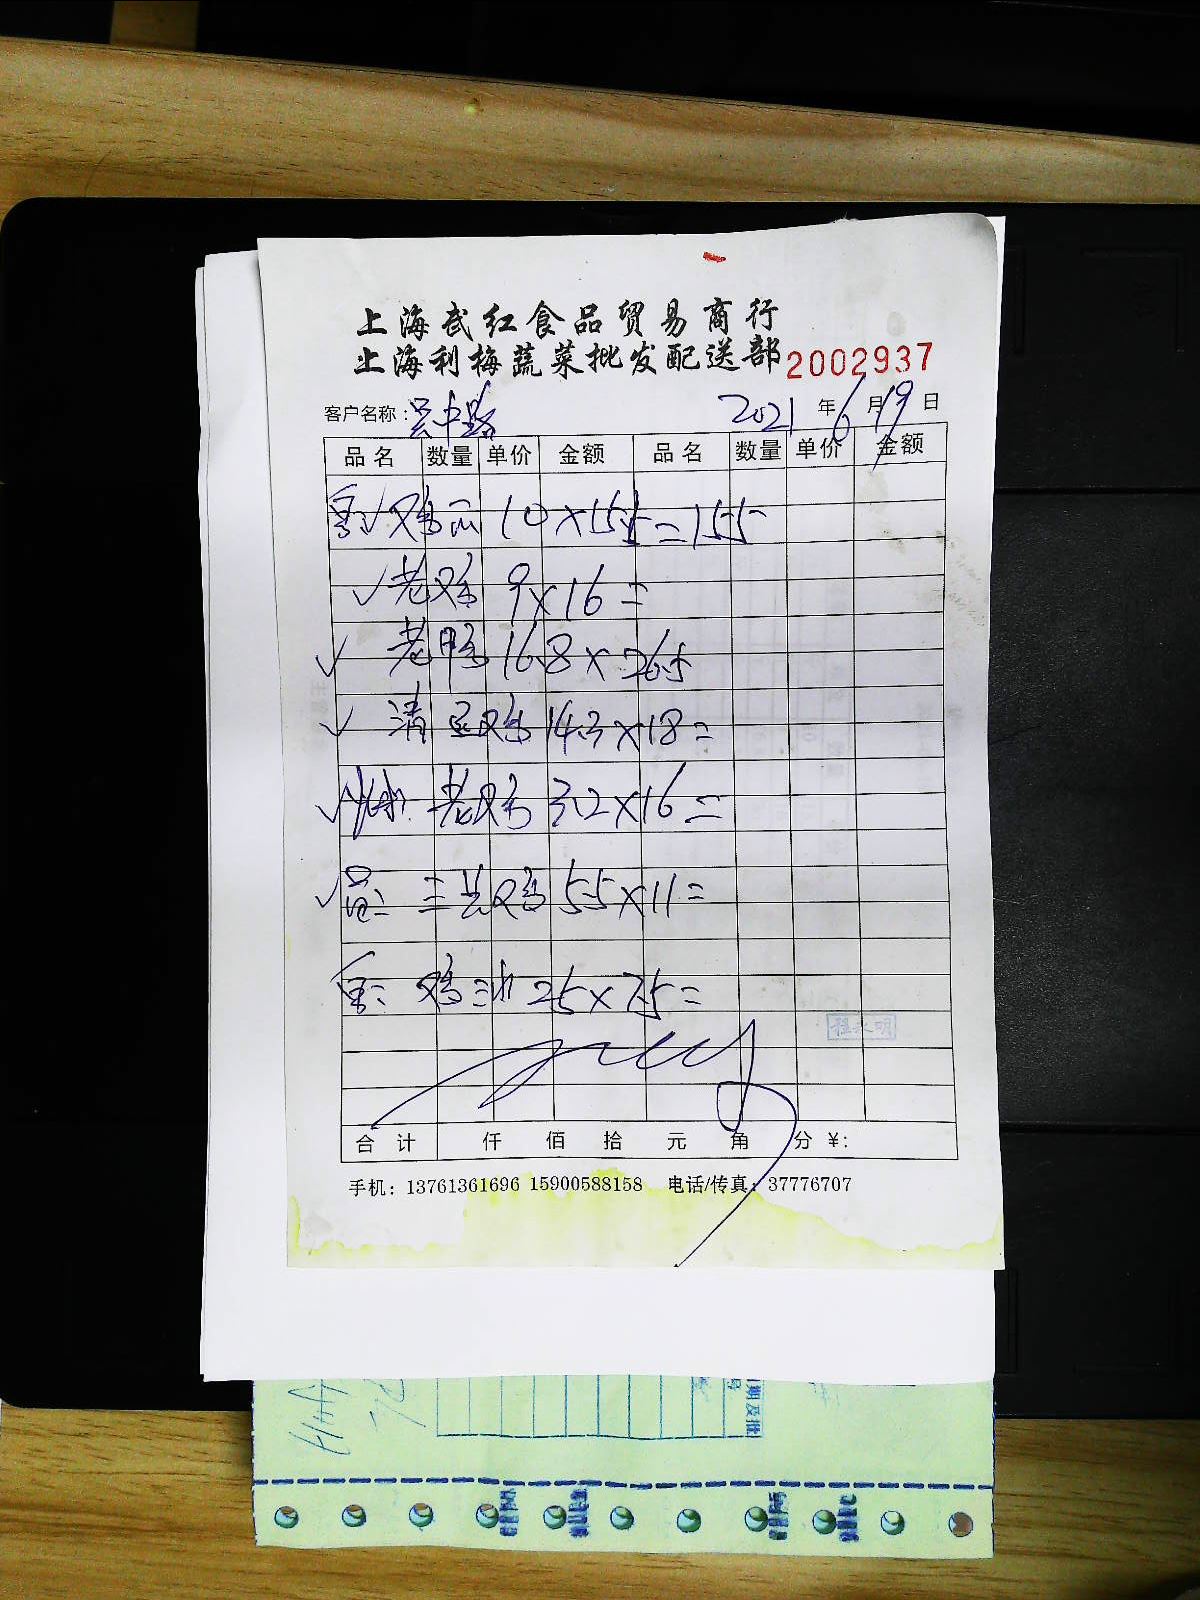 上海武红食品贸易商行
上海利梅蔬菜批发配送部 2002937
客户名称：吴中路 2021年6月19日
品名 数量 单价 金额 品名 数量 单价 金额
10×15.5=155
✓老鸡 9×16=
✓ 老鸭 16.8×26.5
✓ 清远鸡 14.3×18=
✓ 老鸡 3.2×16=
✓ 三黄鸡 5.5×11=
鸡 25×7.5=
合计 仟 佰 拾 元 角 分 ¥:
手机：13761361696 15900588158 电话/传真：37776707
期及批
号